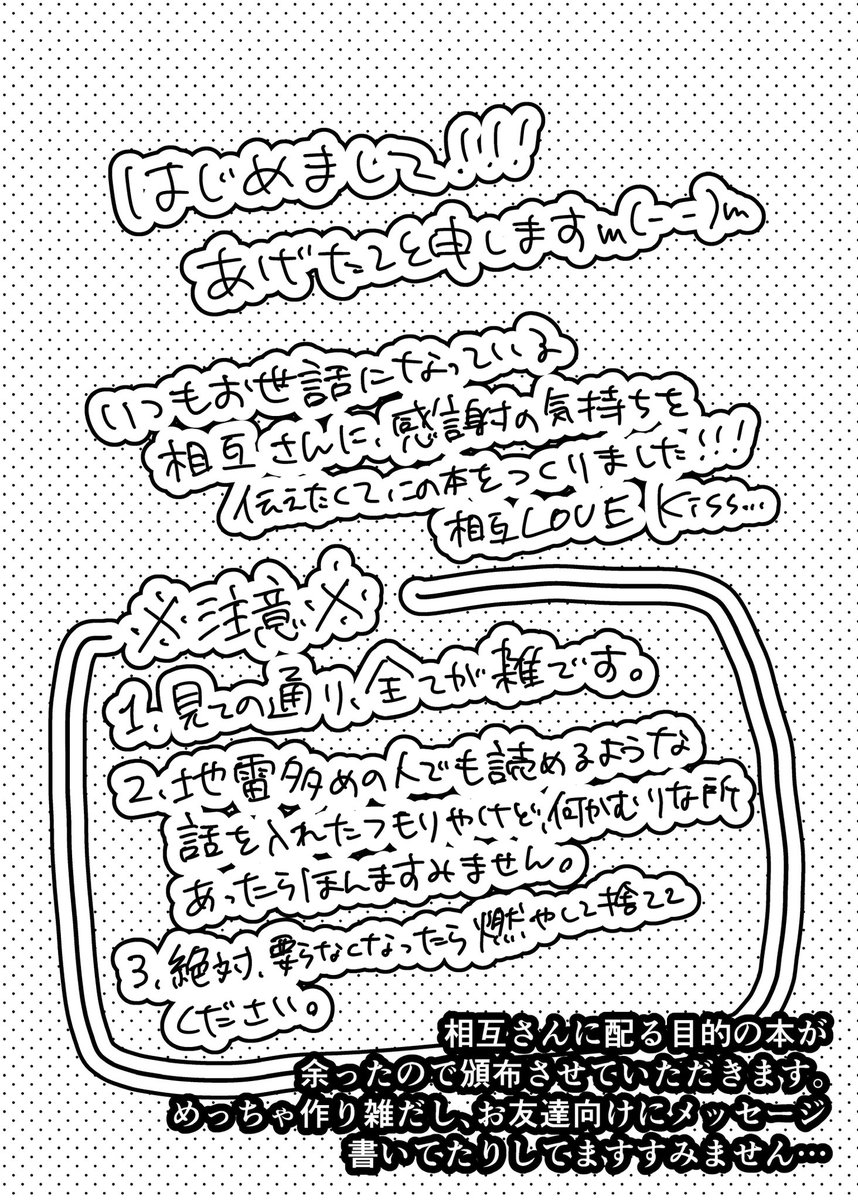 はじめまして!!!
あげたこと申しますm(--)m
いつもお世話になっている
相互さんに、感謝の気持ちを
伝えたくて、この本をつくりました!!!
相互LOVE Kiss...
※注意※
1、見ての通り、全てが雑です。
2、地雷多めの人でも読めるような
話を入れたつもりやけど、何かむりな所
あったらほんますみません。
3、絶対、要らなくなったら燃やして捨てて
ください。
相互さんに配る目的の本が
余ったので頒布させていただきます。
めっちゃ作り雑だし、お友達向けにメッセージ
書いてたりしてますすみません…